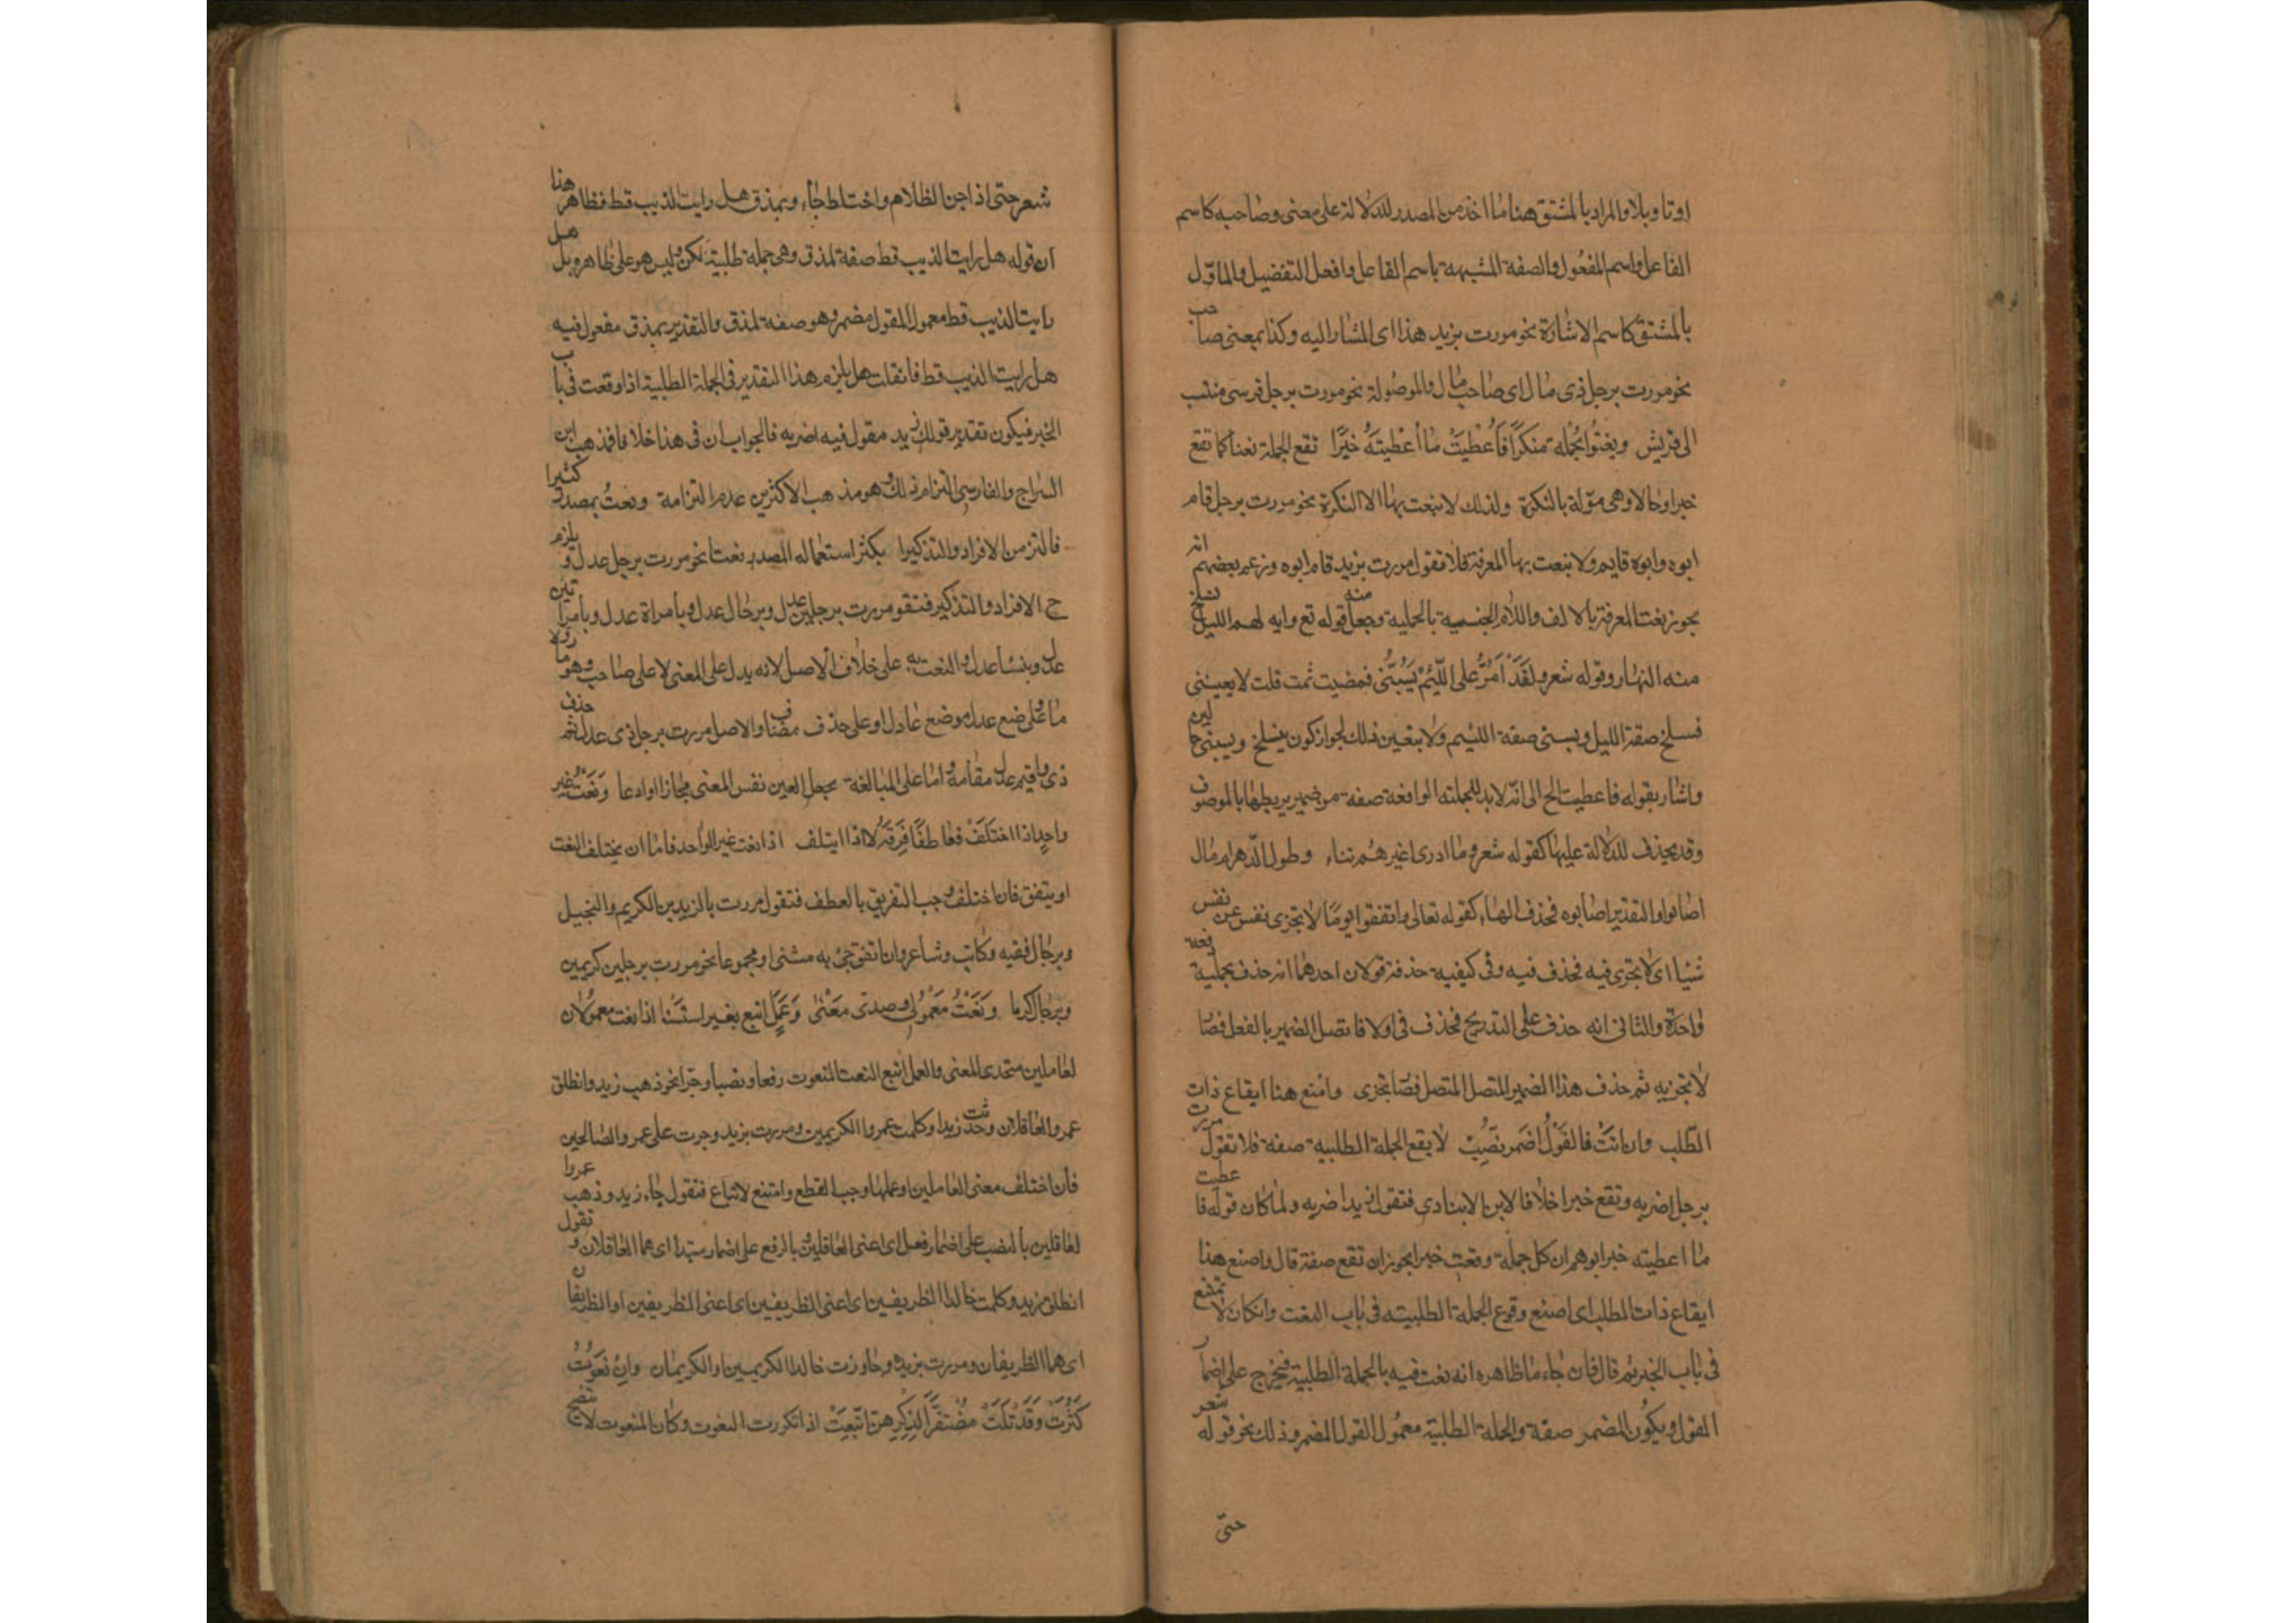 اوتاويلا والمراد بالمشتق هنا ما اخذ من المصدر للدلالة على معنى وصاحبه كاسم
الفاعل واسم المفعول والصفة المشبهة باسم الفاعل وافعل التفضيل والماوّل
بالمشتق كاسم الاشارة نحو مررت بزيد هذا اى المشار اليه وكذا بمعنى صاحب
نحو مررت برجل ذى مال اى صاحب مال والموصولة نحو مررت برجل قرسى منتسب
الى قريش ونعتوا بجملة منكرًا فاُعْطِيَتْ ما أُعْطِيَتهُ خَبَرًا تقع الجملة نعتا كما تقع
خبرا وحالا وهى موّلة بالنكرة ولذلك لا ينعت بها الا النكرة نحو مررت برجل قام
ابوه وابوه قايم ولا ينعت بها المعرفة فلا تقول مررت بزيد قام ابوه وزعم بعضهم انه
يجوز نعت المعرفة بالالف واللام الجنسية بالجملية وجعل منه قوله تع وايه لهم الليل نسلخ
منه النهار وقوله شعر ولَقَدْ اَمُرُّ على اللّئِيْمْ يَسُبُّنى فمضيت ثمت قلت لا يعنينى
فنسلخ صفة الليل ويسبنى صفة اللئيم ولا يتعين ذلك لجواز كون ينسلخ ويسبنى حالين
واشار بقوله فاعطيت الح الى انّه لابد للجملته الواقعة صفة من ضمير يربطها بالموصوف
وقد يحذف للدلالة عليها كقوله شعر وما ادرى اغيرهم تناء وطول الدّهر ام مال
اصابوا والتقدير اصابوه فحذف الهاء كقوله تعالى واتقوا يومًا لا تجزى نفس عن نفس
شيا اى لا تجزى فيه فحذف فيه وفى كيفية حذفه قولان احدهما انه حذف بجملية
واحدة والثانى انه حذف على التدريج فحذف فى اولا فاتصل الضمير بالفعل فصا
لا تجزيه ثم حذف هذا الضمير المتصل المتصل فصا تجزى وامنع هنا ايقاع ذات
الطّلب وان اتتْ فالقَوْلُ اَضمر تصِبْ لا يقع الجملة الطلبية صفة فلا تقول مررت
برجل اضربه وتقع خبرا خلافا لابن الانبادى فتقول زيدا ضربه ولما كان قوله فاعطيت
ما اعطيته خبرا يوهم ان كل جملة وقعت خبرا يجوز ان تقع صفة قال وامنع هنا
ايقاع ذات الطلب اى امنع وقوع الجملة الطلبيته فى باب النعت وان كان لا تمتنع
فى باب الخبر ثم قال فان جاء ما ظاهره انه نعت فيه بالجملة الطلبية فيخرج على اضمار
القول ويكون المضمر صفة والجملة الطلبية معمول القول المضمر وذلك نحو قوله شعر
حتى
شعر حتى اذا جن الظلام واختلط جاء وبمذق هل رايت الذيب قط فظاهر هنا
ان قوله هل رايت الذيب قط صفة لمذق وهى جملة طلبية لكن وليس هو على ظاهره بل هل
رايت الذيب قط معمول لمقول مضمر وهو صفة لمذق والتقدير بمذق مفعول فيه
هل رايت الذيب قط فان قلت هل يلزم هذا التقدير فى الجملة الطلبية اذا وقعت فى باب
الخبر فيكون تقدير قولك زيد مقول فيه اضربه فالجواب ان فى هذا خلافا فمذهب ابن
السراج والفارسى التزام ذلك وهو مذهب الاكثرين عدم التزامة ونعتُ بمصدر كثيرا
فالتز من الافراد والتذكيرا يكثر استعماله المصدر نعتا نحو مررت برجل عدل ويلزم
ح الافراد والتذكير فتقو مررت برجلين عدل وبرجال عدل وبامراة عدل وبامراتين
عدل وبنسا عدل والنعت به على خلاف الاصل لانه يدل على المعنى لا على صاحب وهو ماولا
ما على وضع عدل موضع عادل او على حذف مضاف والاصل مررت برجل ذى عدل ثم حذف
ذى واقيم عدل مقامه واما على المبالغة بجعل العين نفس المعنى مجازا او ادعا ونَعْتُ غير
واحدٍ اذا اختَلَفْ فعا طفًا فَرِقهُ لا اذا ايتلف اذا نعت غير الواحد فاما ان يختلف النعت
او يتفق فان اختلف وجب التفريق بالعطف فتقول مررت بالزيدين الكريم والبخيل
وبرجال فقيه وكاتب وشاعر وان اتفق جئ به مثنى او مجموعا نحو مررت برجلين كريمين
وبرجال كرما ونَعْتُ مَعْمُولى وصدتى مَعْنى وَعَمَل اتبع بغير استثنا اذا نعت معمولان
لعاملين متحدى المعنى والعمل اتبع النعت المنعوت رفعا ونصبا وجرا نحو ذهب زيد وانطلق
عمرو العاقلان وحدثت زيدا وكلمت عمروا الكريمين ومررت بزيد وجرت على عمرو الصالحين
فان اختلف معنى العاملين او عملها وجب القطع وامتنع لاتباع فتقول جاء زيد وذهب عمروا
لعاقلين بالنصب على اضمار فعل اى اعنى العاقلين وبالرفع على اضمار مبتدا اى هما العاقلان وتقول
انطلق زيد وكلمت خالدا الظريفين اى اعنى الظريفين اى اعنى الظريفين او الظريفان
اى هما الظريفان ومررت بزيد وجاوزت خالدا الكريمين او الكريمان وانْ نُعوتُ
كثُرَتْ وَقَدْ تَلَتْ مُفْتقِرًا لِذِكْرِهنّ اُتْبِعَتْ اذا تكررت النعوت وكان المنعوت لا يتضح